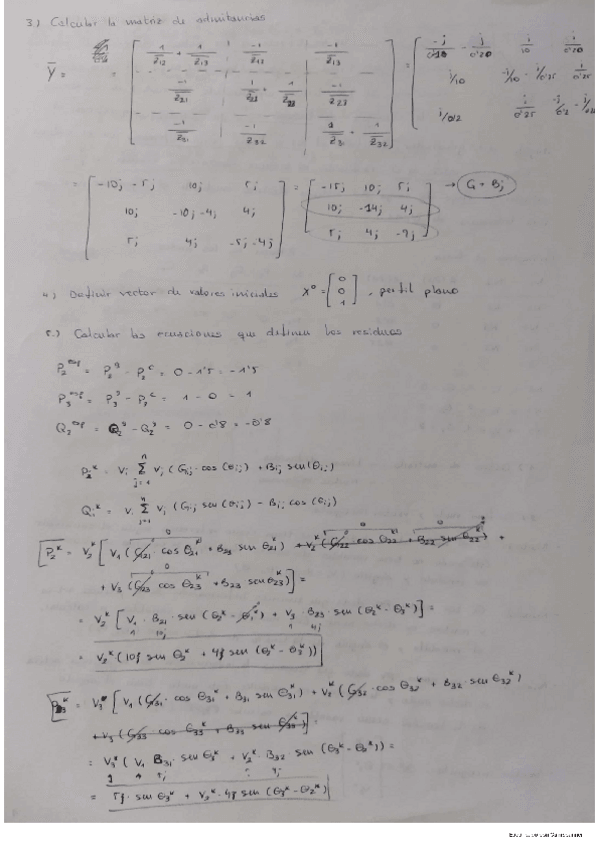 3.) Calcular la matriz de admitancias
Y̅ = = [ 1/Z12 + 1/Z13 | -1/Z12 | -1/Z13 ] = [ -j/0'10 - j/0'20 j/10 j/0'20 ]
[ -1/Z21 | 1/Z21 + 1/Z23 | -1/Z23 ] [ j/10 -j/10 - j/0'25 j/0'25 ]
[ -1/Z31 | -1/Z32 | 1/Z31 + 1/Z32 ] [ j/0'2 j/0'25 -j/0'2 - j/0'25 ]
= [ -10j - 5j 10j 5j ] = [ -15j 10j 5j ] → G + Bj
[ 10j -10j - 4j 4j ] [ 10j -14j 4j ]
[ 5j 4j -5j - 4j ] [ 5j 4j -9j ]
4.) Definir vector de valores iniciales X⁰ = [ 0 0 1 ], perfil plano
5.) Calcular las ecuaciones que definen los residuos
P2^esp = P2^g - P2^c = 0 - 1'5 = -1'5
P3^esp = P3^g - P3^c = 1 - 0 = 1
Q2^esp = Q2^g - Q2^c = 0 - 0'8 = -0'8
Pi^k = Vi Σ(j=1, n) Vj (Gij · cos(θij) + Bij sen(θij))
Qi^k = Vi Σ(j=1, n) Vj (Gij sen(θij) - Bij cos(θij))
P2^k = V2^k [ V1 (G21 · cos θ21^k + B21 sen θ21^k) + V2^k (G22 cos θ22^k + B22 sen θ22^k) +
+ V3 (G23 cos θ23^k + B23 sen θ23^k) ] =
= V2^k [ V1 · B21 · sen (θ2^k - θ1^k) + V3 · B23 · sen (θ2^k - θ3^k) ] =
= V2^k (10j sen θ2^k + 4j sen (θ2^k - θ3^k))
P3^k = V3 [ V1 (G31 · cos θ31^k + B31 sen θ31^k) + V2^k (G32 · cos θ32^k + B32 sen θ32^k)
+ V3 (G33 cos θ33^k + B33 sen θ33^k) ] =
= V3 ( V1 B31 · sen θ3^k + V2^k · B32 sen (θ3^k - θ2^k)) =
= 5j · sen θ3^k + V2^k · 4j sen (θ3^k - θ2^k)